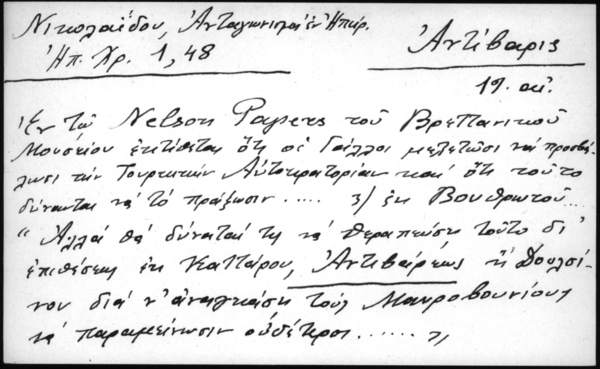 Νικολαΐδου, Ἀνταγωνισμοὶ ἐν Ἠπείρ.
Ἠπ. Χρ. 1, 48
Ἀντίβαρις
19. αἰ.
Ἐν τῷ Nelson Papers τοῦ Βρεττανικοῦ
Μουσείου ἐκτίθεται ὅτι οἱ Γάλλοι μελετῶσι νὰ προσβά-
λωσι τὴν Τουρκικὴν Αὐτοκρατορίαν καὶ ὅτι τοῦτο
δύνανται νὰ τὸ πράξωσιν ..... 3) ἐκ Βουθρωτοῦ...
"Ἀλλὰ θὰ δύναταί τις νὰ θεραπεύσῃ τοῦτο δι'
ἐπιθέσεως ἐκ Καττάρου, Ἀντιβάρεως ἢ Δουλσί-
νου διὰ ν' ἀναγκάσῃ τοὺς Μαυροβουνίους
νὰ παραμείνωσιν οὐδέτεροι ......."